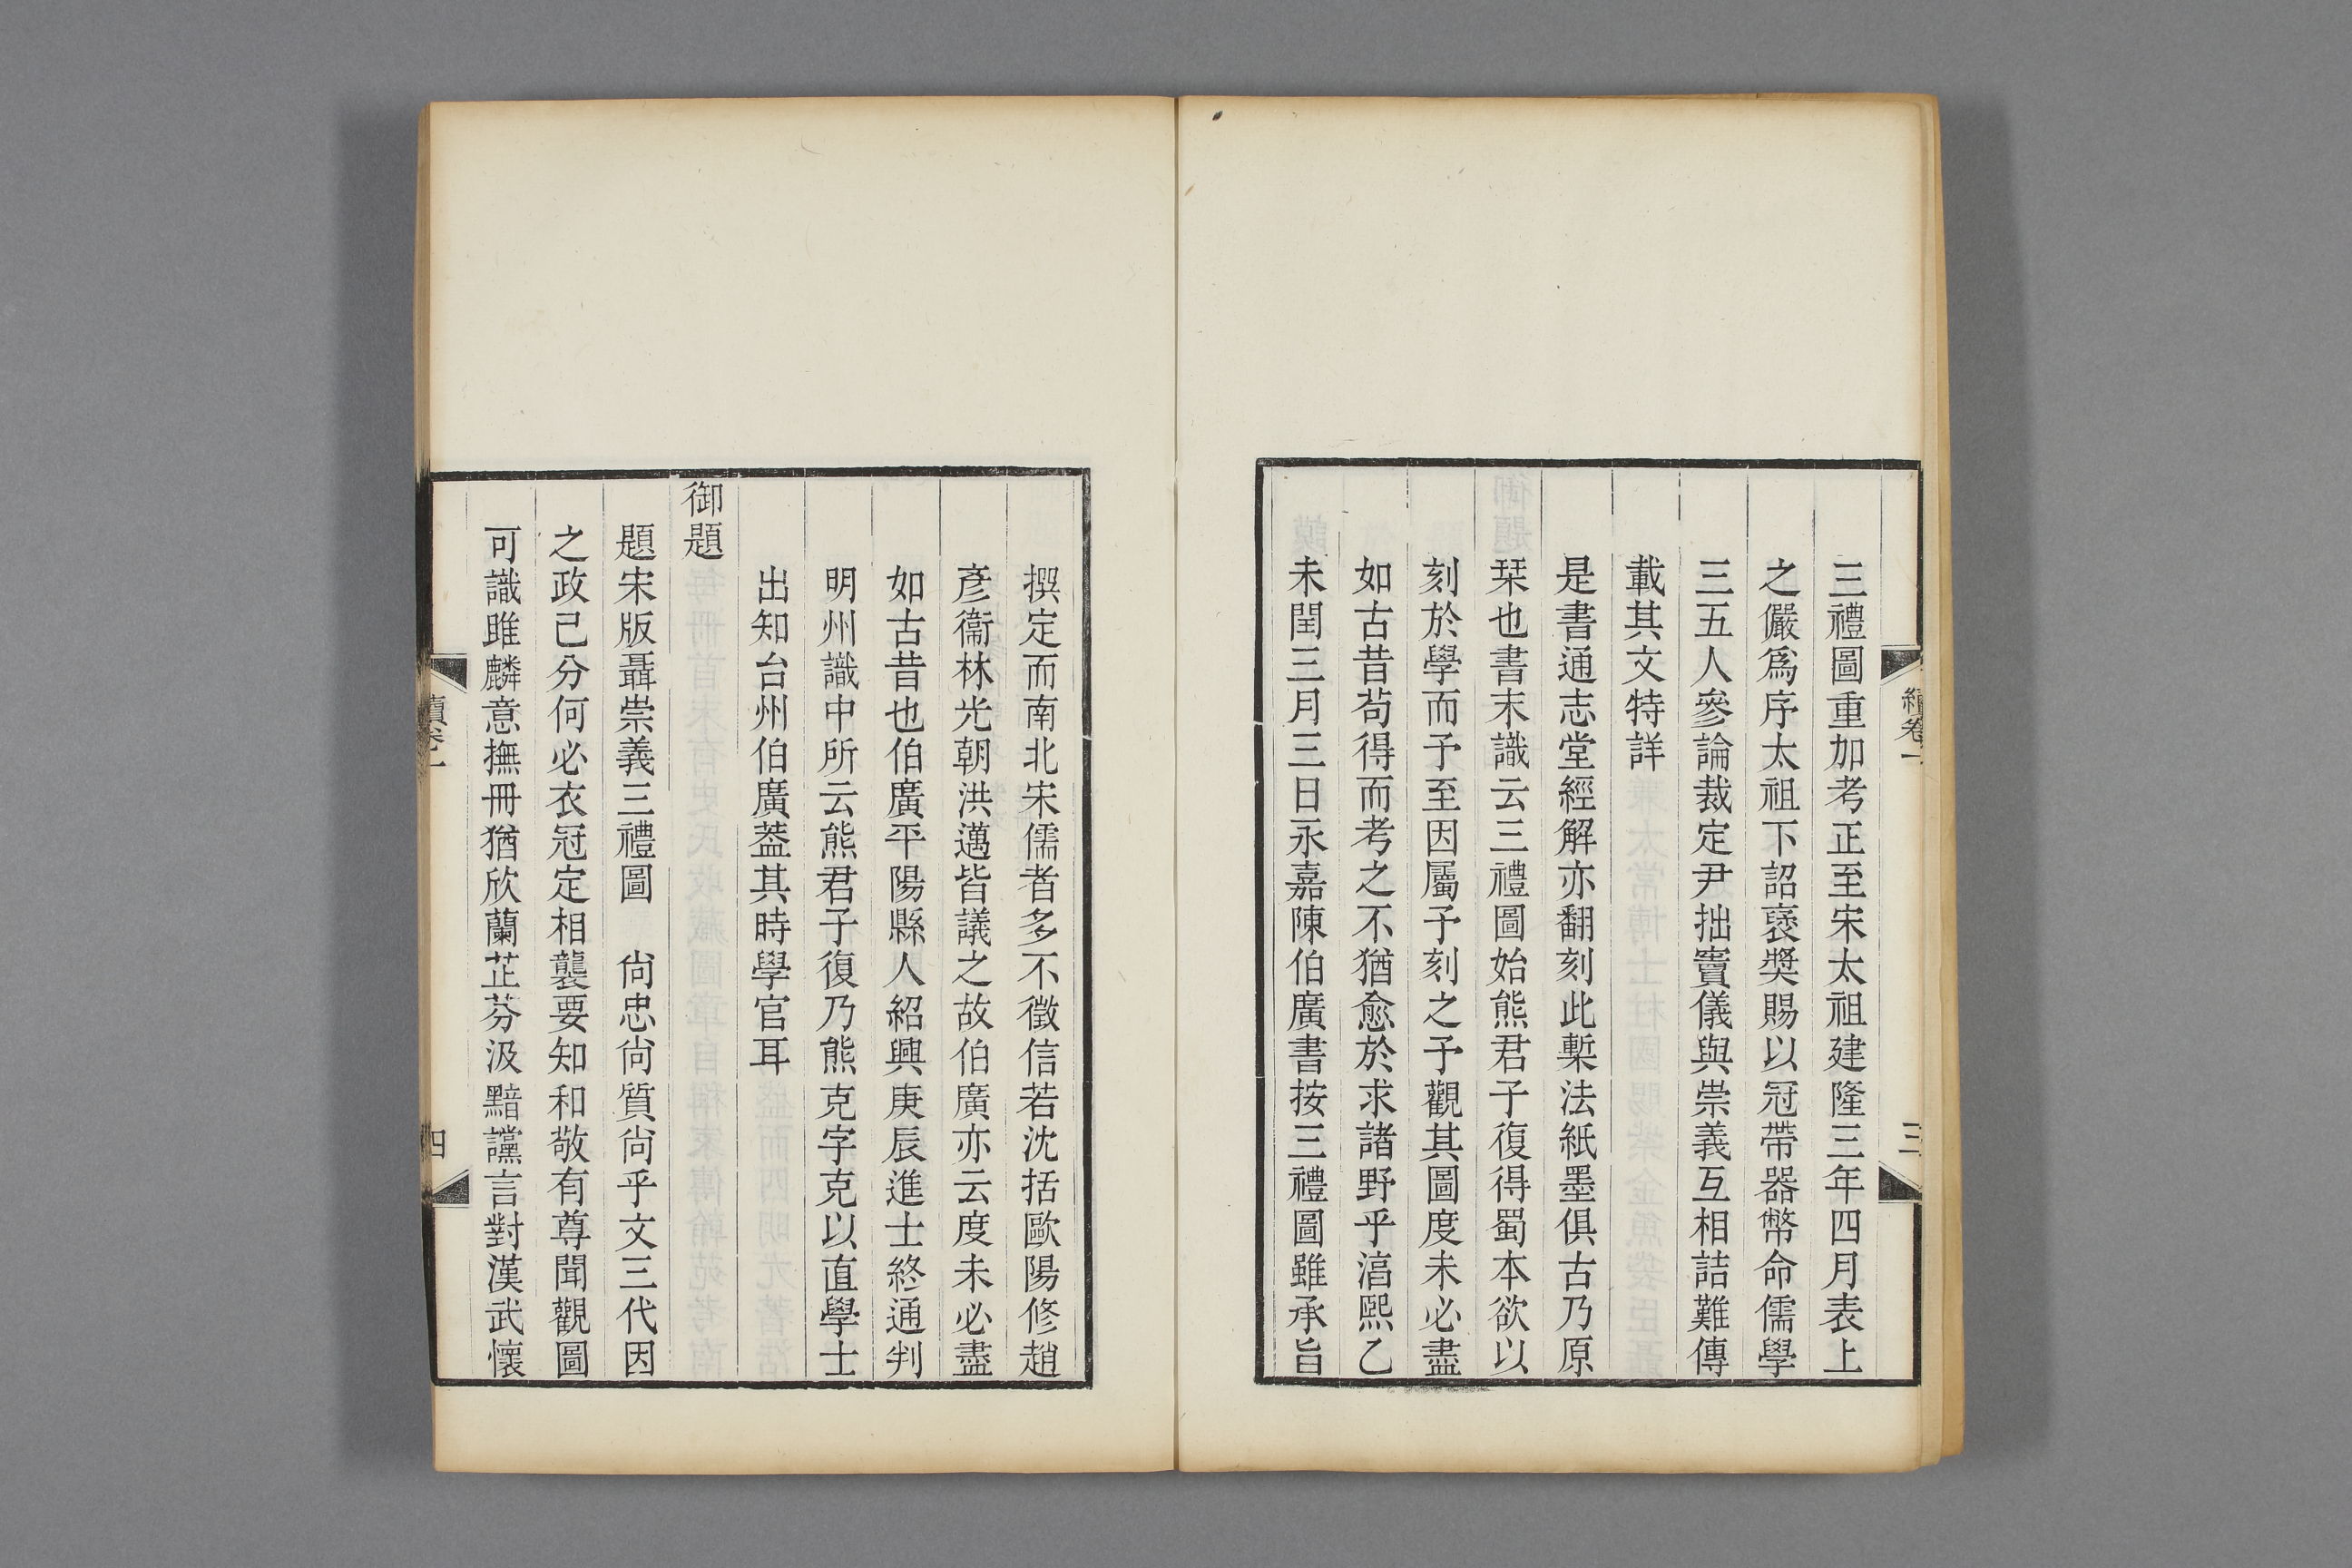 續卷一
三
三禮圖重加考正至宋太祖建隆三年四月表上
之儼爲序太祖下詔襃奬賜以冠帶器幣命儒學
三五人參論裁定尹拙竇儀與崇義互相詰難傳
載其文特詳
是書通志堂經解亦翻刻此槧法紙墨俱古乃原
栞也書末識云三禮圖始熊君子復得蜀本欲以
刻於學而予至因屬予刻之予觀其圖度未必盡
如古昔苟得而考之不猶愈於求諸野乎淳熙乙
未閏三月三日永嘉陳伯廣書按三禮圖雖承旨
撰定而南北宋儒者多不徵信若沈括歐陽修趙
彥衞林光朝洪邁皆議之故伯廣亦云度未必盡
如古昔也伯廣平陽縣人紹興庚辰進士終通判
明州識中所云熊君子復乃熊克字克以直學士
出知台州伯廣葢其時學官耳
御題
題宋版聶崇義三禮圖　尙忠尙質尙乎文三代因
之政己分何必衣冠定相襲要知和敬有尊聞觀圖
可識雎麟意撫冊猶欣蘭芷芬汲黯讜言對漢武懷
續卷一
四